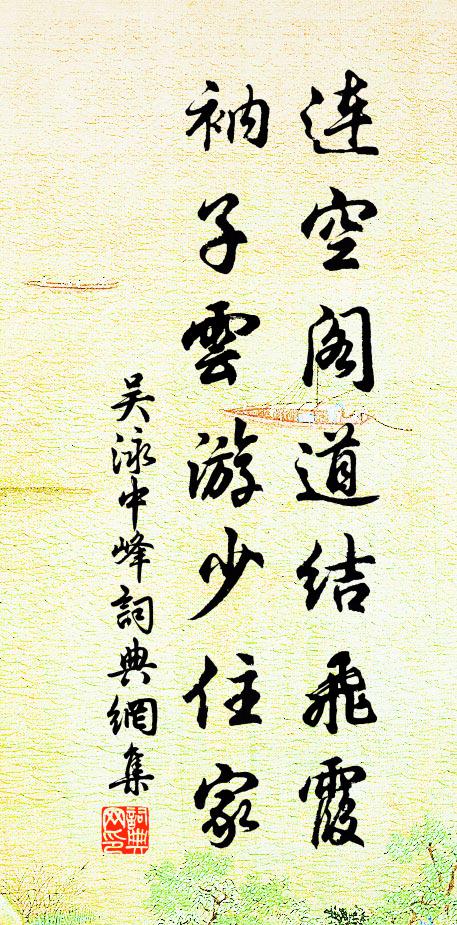 連空阁道结飛霞
衲子雲游少住家
吴泳中峰詞典網集
詞典網印